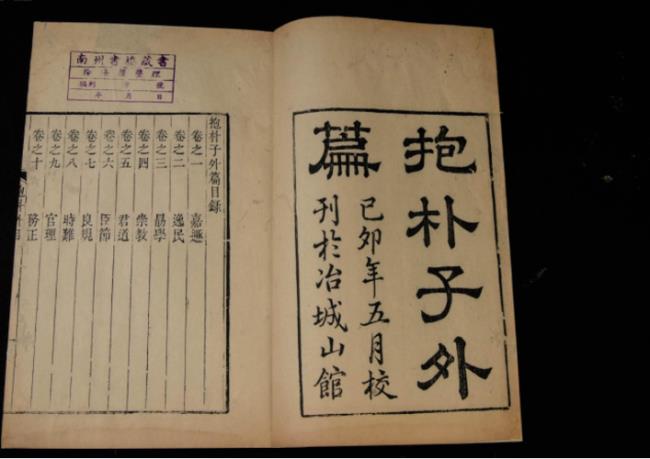 抱朴子外
篇
己卯年五月校
刊於冶城山館
南州書樓藏書
年 月 日
抱朴子外篇目錄
卷之一 嘉遯
卷之二 逸民
卷之三 勗學
卷之四 崇教
卷之五 君道
卷之六 臣節
卷之七 良規
卷之八 時難
卷之九 官理
卷之十 務正